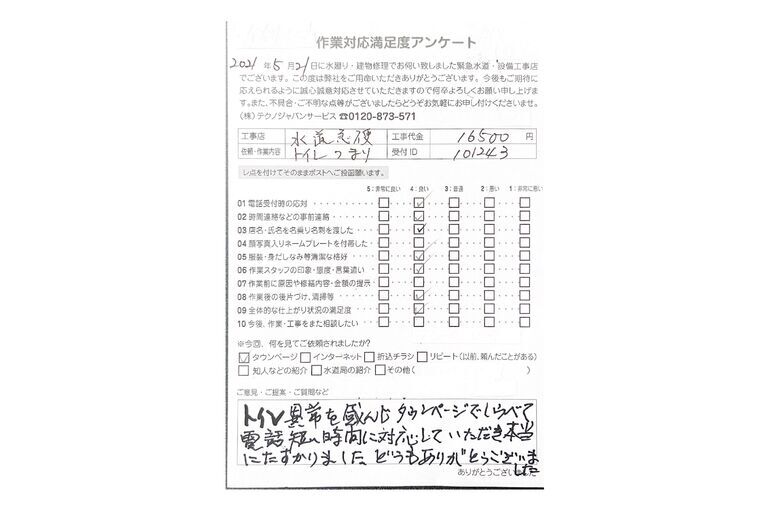 作業対応満足度アンケート
2021年5月21日に水廻り・建物修理でお伺い致しました緊急水道・設備工事店
でございます。この度は弊社をご用命いただきありがとうございます。今後もご期待に
応えられるように誠心誠意対応させていただきますので何卒よろしくお願い申し上げま
す。また、不具合・ご不明な点等がございましたらどうぞお気軽にお申し付けくださいませ。
(株)テクノジャパンサービス ☎0120-873-571
工事店 水道急便 工事代金 16500 円
依頼・作業内容 トイレつまり 受付ID 101243
レ点を付けてそのままポストへご投函願います。
5:非常に良い 4:良い 3:普通 2:悪い 1:非常に悪い
01 電話受付時の応対
02 時間連絡などの事前連絡
03 店名・氏名を名乗り名刺を渡した
04 顔写真入りネームプレートを付帯した
05 服装・身だしなみ等清潔な格好
06 作業スタッフの印象・態度・言葉遣い
07 作業前に原因や修繕内容・金額の提示
08 作業後の後片づけ、清掃等
09 全体的な仕上がり状況の満足度
10 今後、作業・工事をまた相談したい
※今回、何を見てご依頼されましたか?
タウンページ インターネット 折込チラシ リピート(以前、頼んだことがある)
知人などの紹介 水道局の紹介 その他( )
ご意見・ご提案・ご質問など
トイレ異常を感んじタウンページでしらべて
電話短い時間に対応していただき本当
にたすかりました。どうもありがとうございま
した
ありがとうございました